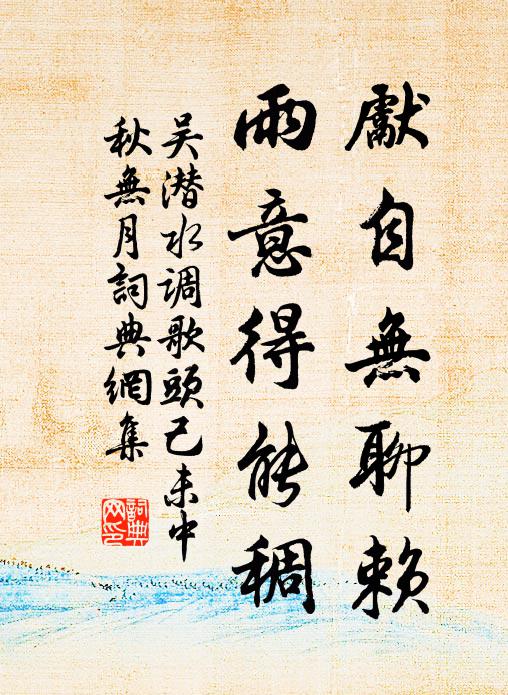 獻自無聊赖
雨意得能稠
吴潜水调歌頭己未中
秋無月詞典網集
詞典
网印